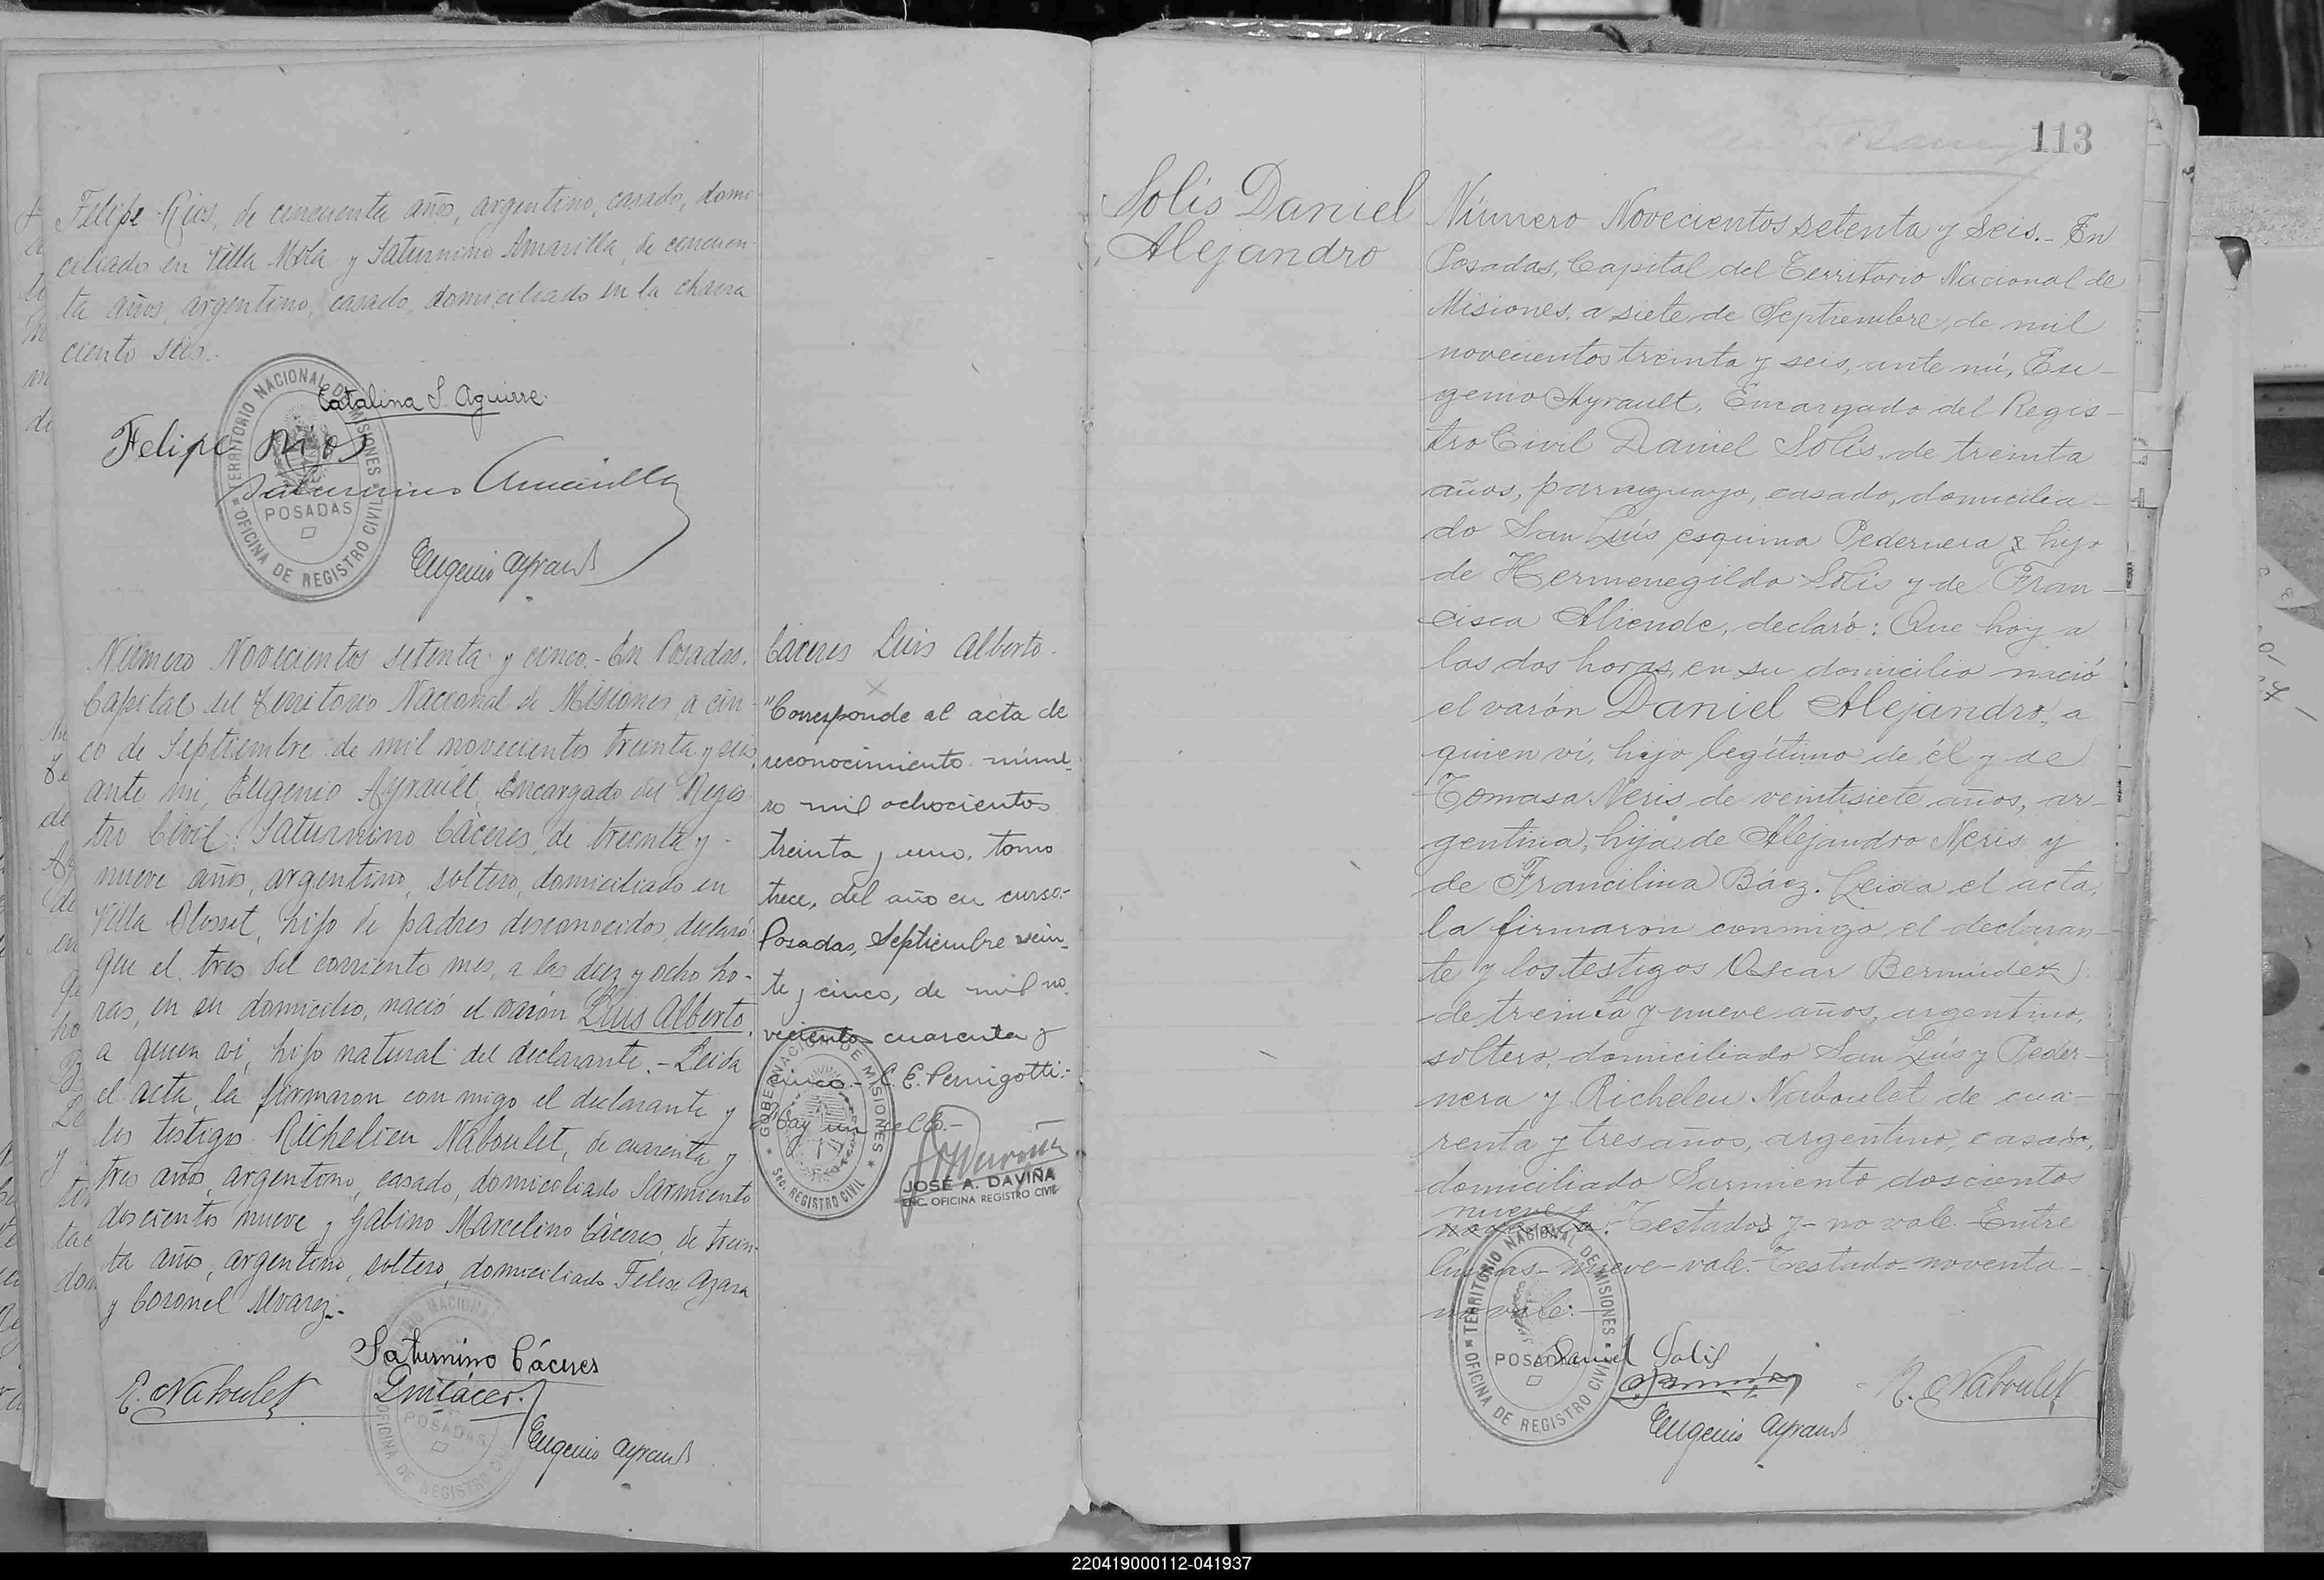 Felipe Rios, de cincuenta años, argentino, casado, domi-
ciliado en Villa Mola y Saturnino Amarilla, de cincuen-
ta años, argentino, casado, domiciliado en la chacra
ciento seis.-
TERRITORIO NACIONAL DE MISIONES
OFICINA DE REGISTRO CIVIL
POSADAS
Catalina S. Aguirre
Felipe Rios
Saturnino Amarilla
Eugenio Ayrault
Número Novecientos setenta y cinco.- En Posadas,
Capital del Territorio Nacional de Misiones, a cin-
co de Septiembre de mil novecientos treinta y seis,
ante mi, Eugenio Ayrault, Encargado del Regis-
tro Civil, Saturnino Cáceres, de treinta y
nueve años, argentino, soltero, domiciliado en
Villa Blosset, hijo de padres desconocidos, declaró:
que el tres del corriente mes, a las diez y ocho ho-
ras, en su domicilio, nació el varón Luis Alberto,
a quien vi, hijo natural del declarante.- Leida
el acta, la firmaron con migo el declarante y
los testigos Richelieu Naboulet, de cuarenta y
tres años, argentino, casado, domiciliado Sarmiento
doscientos nueve y Gabino Marcelino Cáceres, de trein-
ta años, argentino, soltero, domiciliado Felix Azara
y Coronel Alvarez.-
Saturnino Cáceres
R. Naboulet
Eugenio Ayrault
POSADAS
OFICINA DE REGISTRO CIVIL
Cáceres Luis Alberto.
"Corresponde al acta de
reconocimiento núme-
ro mil ochocientos
treinta y uno, tomo
trece, del año en curso.-
Posadas, Septiembre vein-
te y cinco, de mil no-
veciento cuarenta y
cinco.- C. E. Pernigotti.-
Hay un sello.-
GOBERNACION DE MISIONES
ENC. REGISTRO CIVIL
JOSÉ A. DAVIÑA
ENC. OFICINA REGISTRO CIVIL
113
Solís Daniel
Alejandro
Número Novecientos setenta y seis.- En
Posadas, Capital del Territorio Nacional de
Misiones, a siete de Septiembre, de mil
novecientos treinta y seis, ante mí, Eu-
genio Ayrault, Encargado del Regis-
tro Civil Daniel Solís, de treinta
años, paraguayo, casado, domicilia-
do San Luís esquina Pedernera y hijo
de Hermenegildo Solís y de Fran-
cisca Aliende, declaró: Que hoy a
las dos horas, en su domicilio nació
el varón Daniel Alejandro, a
quien ví, hijo legítimo de él y de
Tomasa Neris de veintisiete años, ar-
gentina, hija de Alejandro Neris y
de Francilina Báez. Leida el acta,
la firmaron conmigo el declaran-
te y los testigos Oscar Bermúdez
de treinta y nueve años, argentino,
soltero, domiciliado San Luís y Peder-
nera y Richeleu Naboulet de cua-
renta y tres años, argentino, casado,
domiciliado Sarmiento doscientos
nueve
noventa.- Testados y- no vale. Entre
líneas- nueve- vale.- Testado noventa-
no vale:-
TERRITORIO NACIONAL DE MISIONES
OFICINA DE REGISTRO CIVIL
POSADAS
Daniel Solis
R. Naboulet
Eugenio Ayrault
220419000112-041937